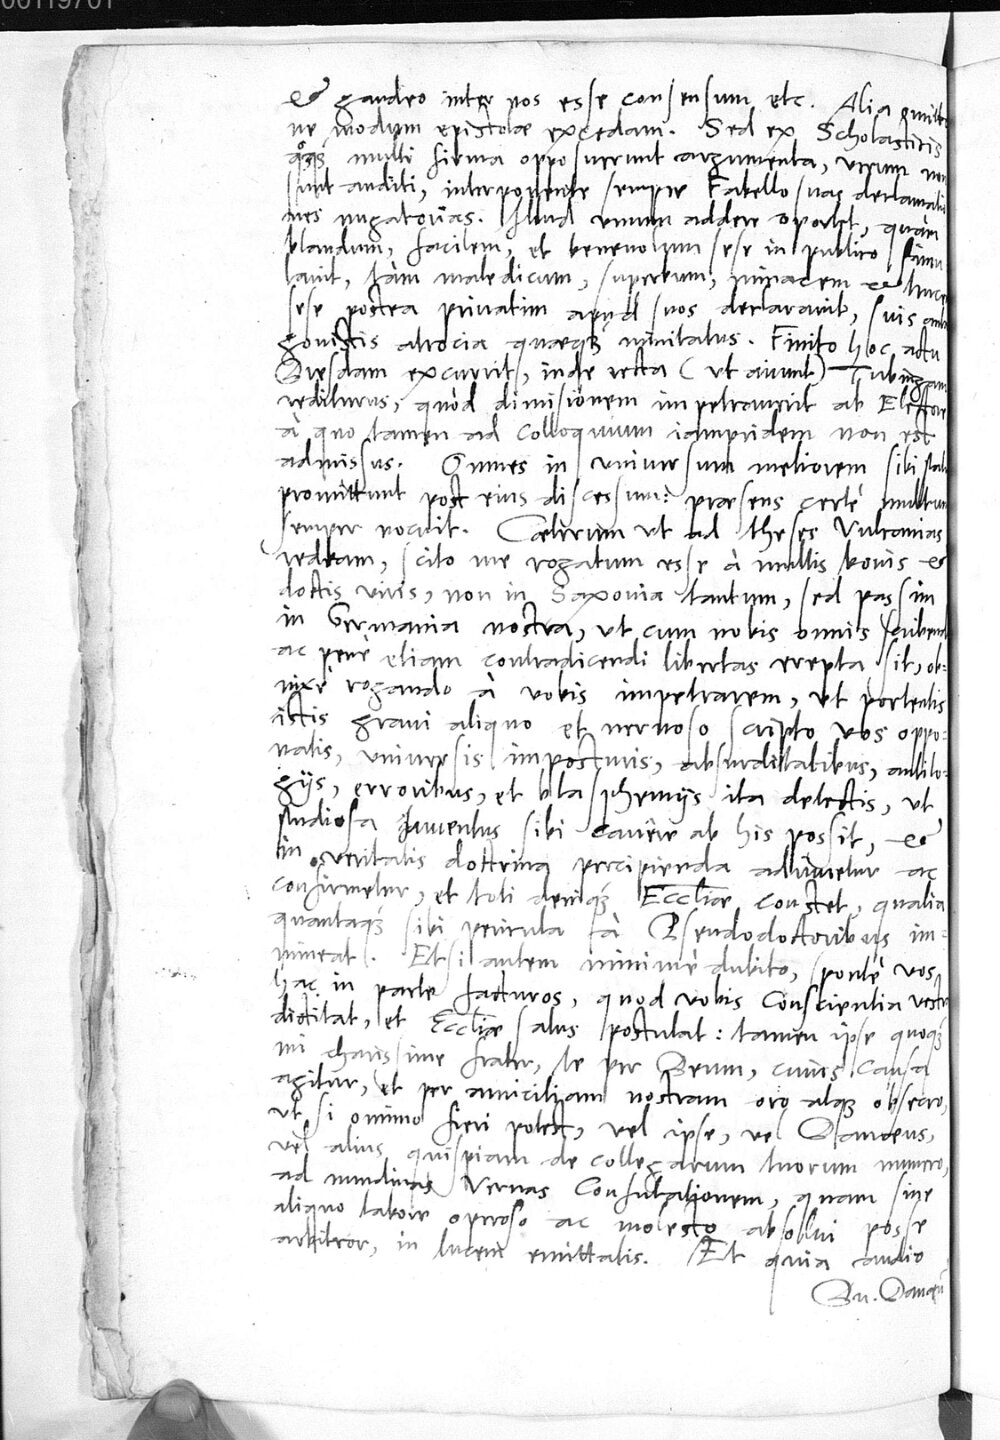 00119701
& gaudeo inter nos esse consensum etc. Alia omitto
ne modum epistolæ excedam. Sed ex Scholasticis
quoq́; multi firma opposuerunt argumenta, verum non
sunt auditi, interponente semper Fabello suas declamatio
nes nugatorias. Illud unum addere oportet, quàm
blandum, facilem, et benevolum sese in publico simu
lavit, tàm maledicum, superbum, minacem & truce
sese postea privatim apud suos declaravit, suis anta
gonistis atrocia quæq; minitatus. Finito hoc actu
Dresdam excurrit, inde recta (ut aiunt) Tubingam
rediturus, quòd dimisionem impetraverit ab Electore
à quo tamen ad Colloquium iampridem non est
admissus. Omnes in universum meliorem sibi statu
promittunt post eius discessum: præsens certè multum
semper nocuit. Cæterum ut ad theses
redeam, scito me rogatum esse à multis bonis &
doctis viris, non in Saxonia tantum, sed passim
in Germania nostra, ut cum nobis omnis scribendi
ac penè etiam contradicendi libertas erepta sit, ob-
nixè rogando à vobis impetrarem, ut portentis
istis gravi aliquo et nervoso scripto vos oppo-
natis, universis imposturis, absurditatibus, antilo-
gijs, erroribus, et blasphemijs ita detectis, ut
studiosa Iuventus sibi cavere ab his possit, &
in veritatis doctrina percipienda adiuvetur ac
confirmetur, et toti deniq́; Eccliæ constet, qualia
quantaq́; sibi pericula à Pseudodoctoribus im-
mineat. Etsi autem minimè dubito, spontè vos
hac in parte facturos, quod vobis Conscientia vestra
dictitat, et Eccliæ salus postulat: tamen ipse quoq́;
mi charissime frater, te per Deum, cuius causa
agitur, et per amicitiam nostram oro atq; obsecro,
ut si omnino fieri potest, vel ipse, vel Danaeus,
vel alius quispiam de collegarum tuorum numero,
ad nundinas vernas Confutationem, quam sine
aliquo labore operoso ac molesto absolvi posse
arbitror, in lucem emittatis. Et quia audio
Danaeū